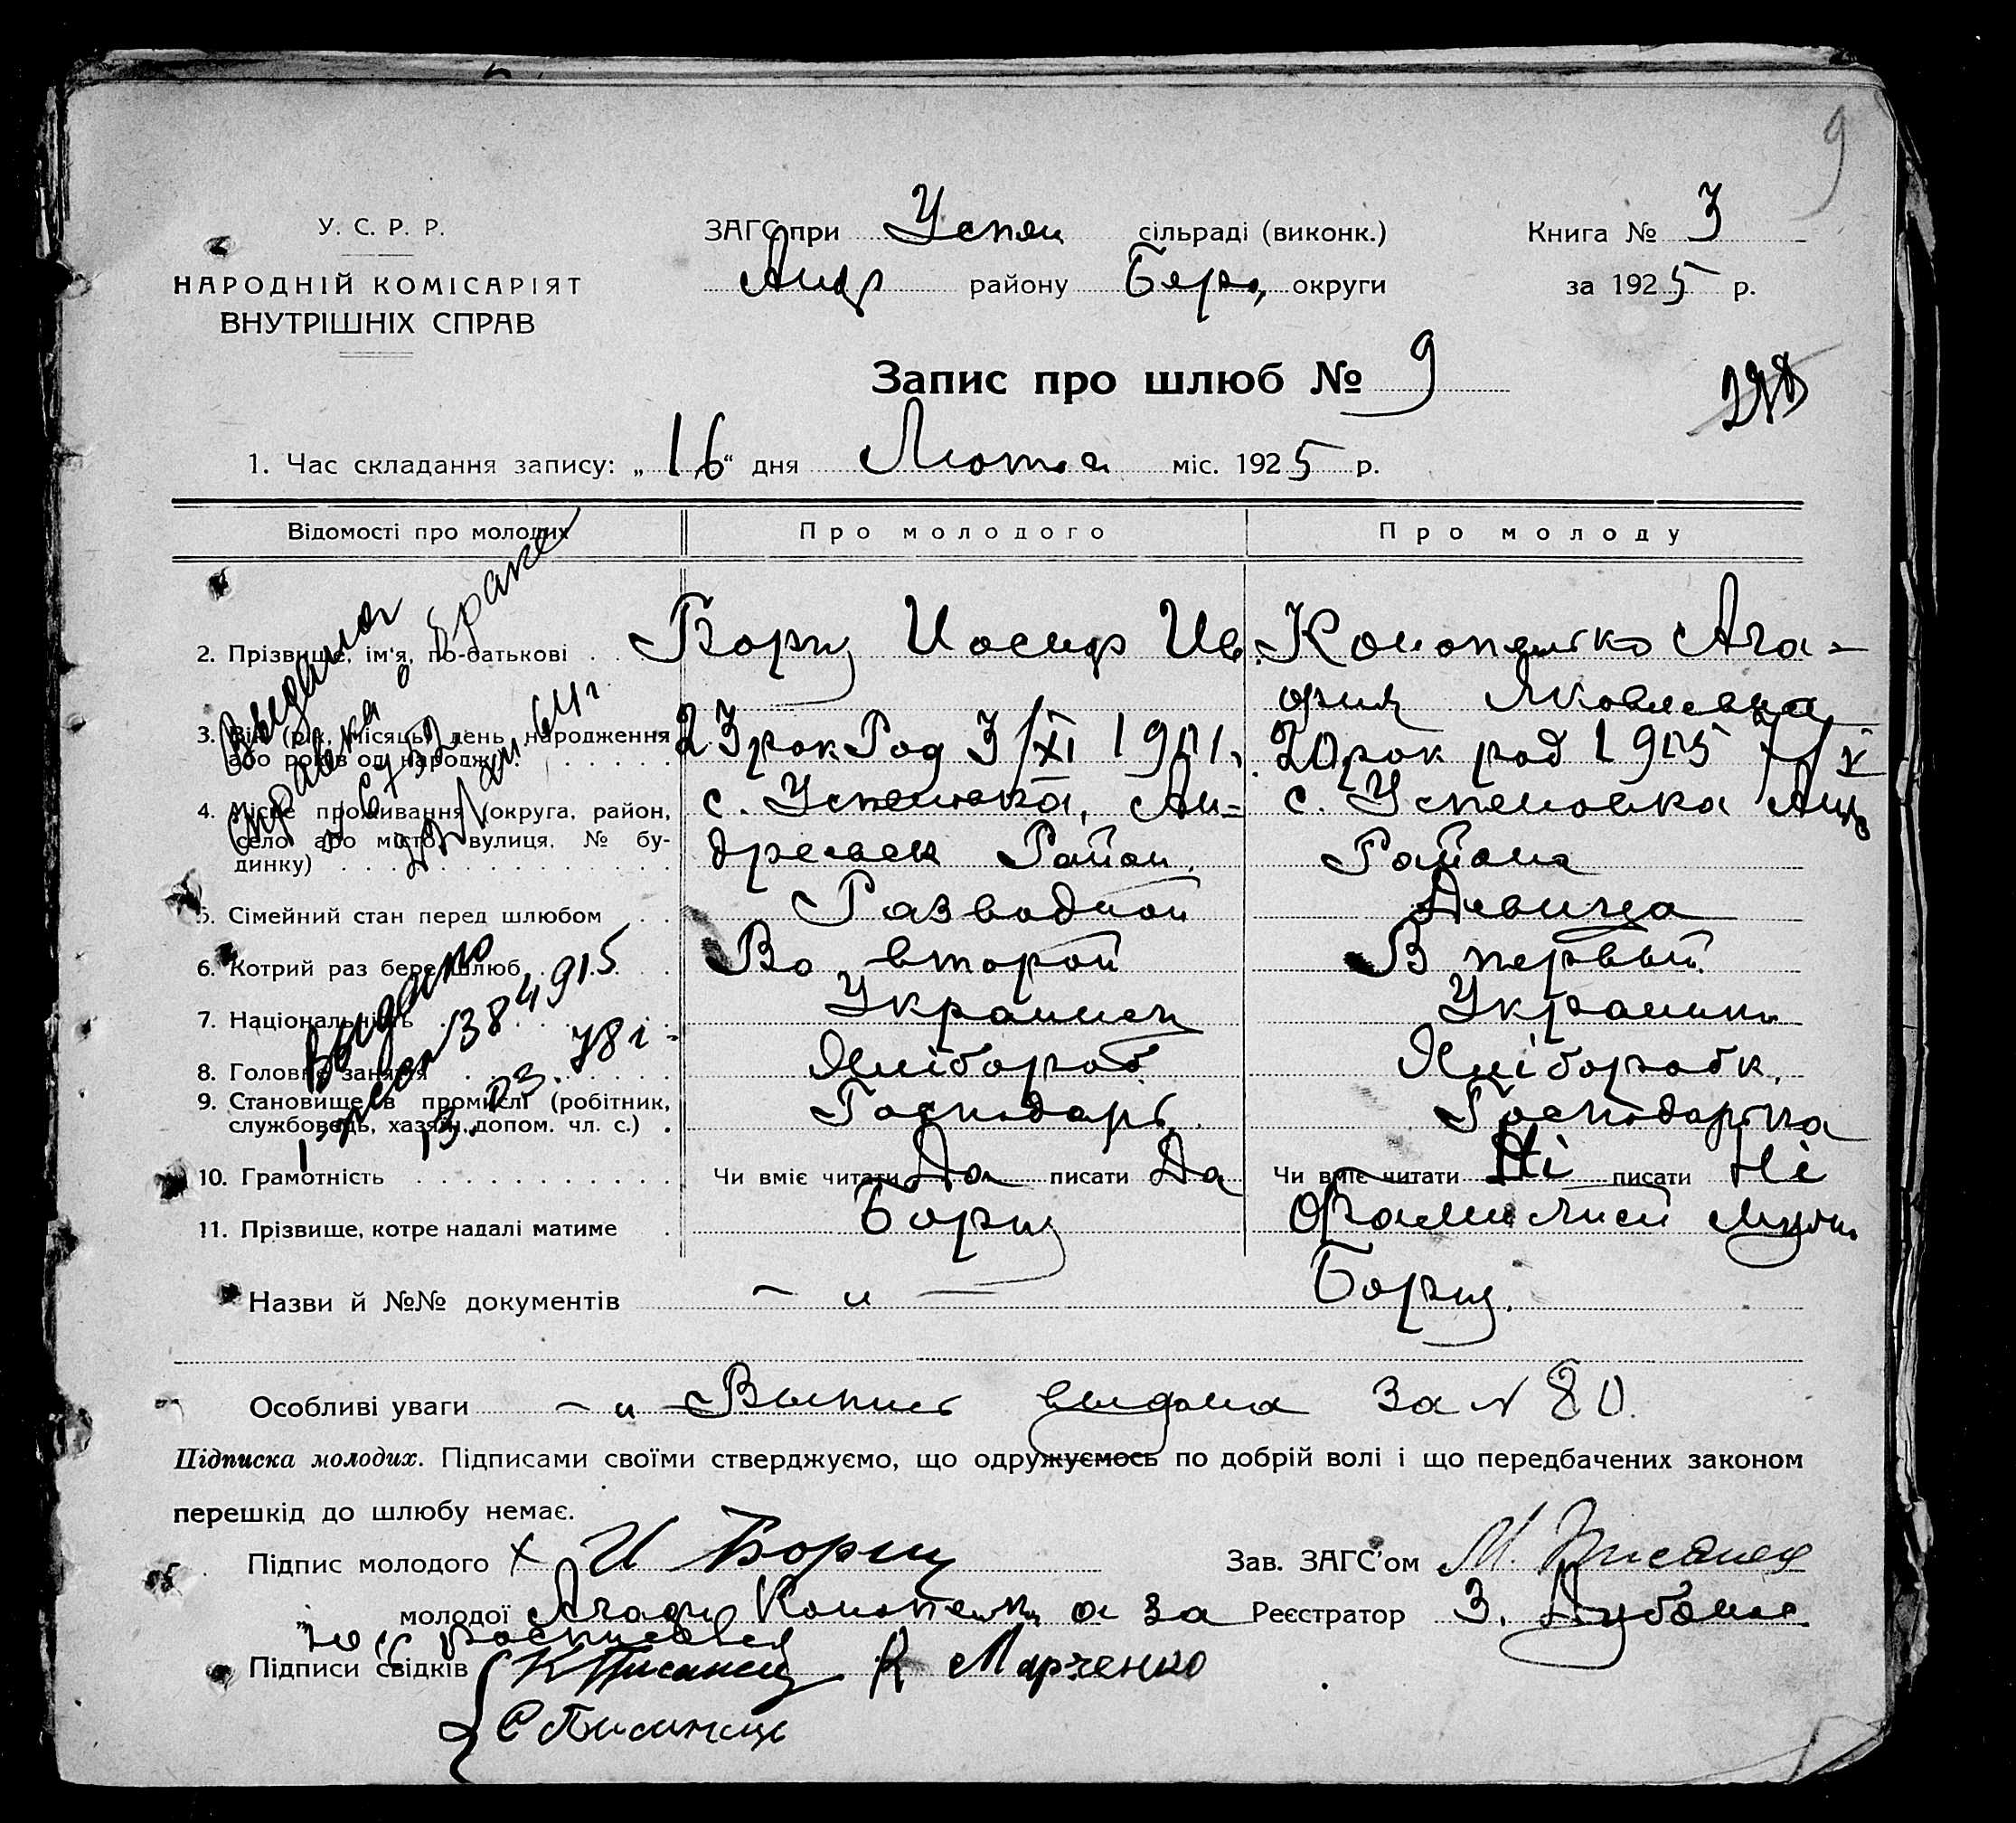 9
У. С. Р. Р.
НАРОДНІЙ КОМІСАРІЯТ
ВНУТРІШНІХ СПРАВ
ЗАГС при Успен сільраді (виконк.)
Андр району Бердя, округи
Книга № 3
за 1925 р.
Запис про шлюб № 9
1. Час складання запису: „16“ дня Лютого міс. 1925 р.
Відомості про молодих
Про молодого
Про молоду
2. Прізвище, ім'я, по-батькові
Борщ Иосиф Ив.
Конопелько Ага-
фия Яковлевна
3. Вік (рік, місяць, день народження
або років од народж.)
23 рок Род 3/XI 1901.
20 рок род 1905 7/V
4. Місце проживання (округа, район,
село або місто, вулиця, № бу-
динку)
с. Успеновка, Ан-
дреевск Район.
с. Успеновка Андр
Района
5. Сімейний стан перед шлюбом
Разводной
Девица
6. Котрий раз бере шлюб
Во второй
В первый
7. Національність
Украинец
Украинк
8. Головне заняття
Хлібороб
Хліборобк.
9. Становище в промислі (робітник,
службовець, хазяїн, допом. чл. с.)
Господарь.
Господарька
10. Грамотність
Чи вміє читати Да писати Да
Чи вміє читати Ні писати Ні
11. Прізвище, котре надалі матиме
Борщ
Фамилией мужа
Борщ.
Назви й №№ документів
— и —
Особливі уваги — и — Выпись выдана за № 80.
Підписка молодих. Підписами своїми стверджуємо, що одружуємось по добрій волі і що передбачених законом
перешкід до шлюбу немає.
Підпис молодого х И Борщ
Зав. ЗАГС'ом М. Писанец
молодої Агафи Конопельк а за
Реєстратор З.
нее росписався
Підписи свідків К Писанец К Марченко
Є Писанець
Выдана
справка о браке
Выдано
384915
13. 03. 78 г.